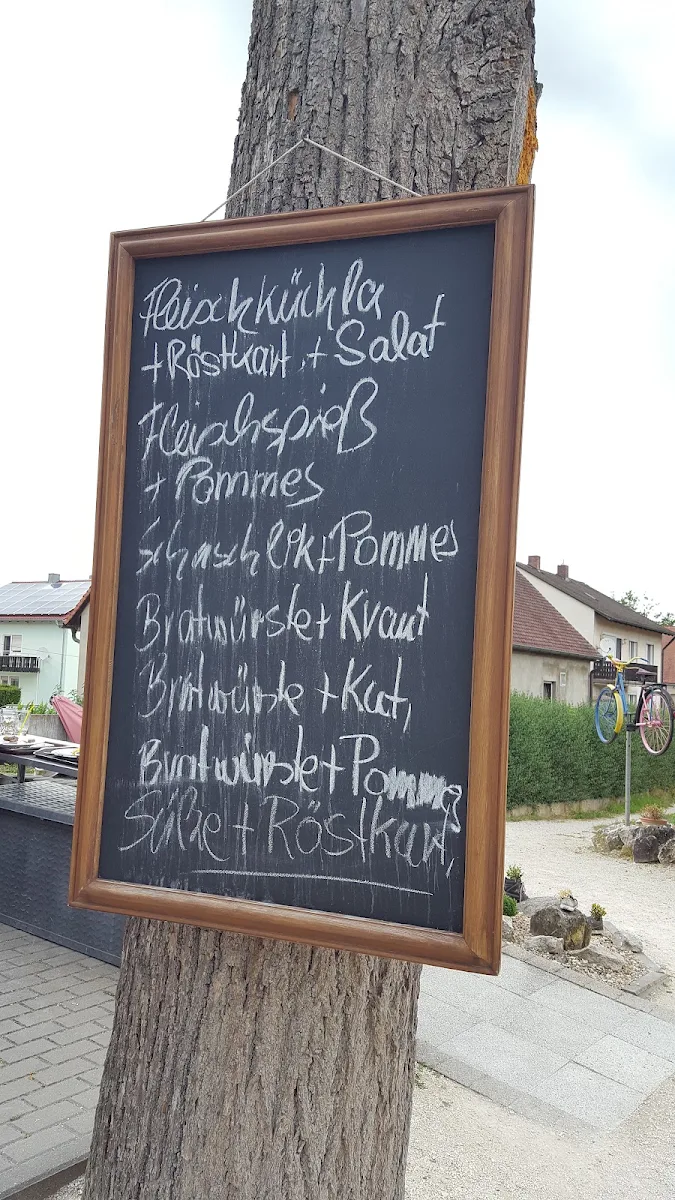 Fleischküchla
+Röstkart. + Salat
Fleischspieß
+ Pommes
Schaschlik+Pommes
Bratwürste+ Kraut
Bratwürste +Kart.
Bratwürste+Pommes
Sülze + Röstkart.